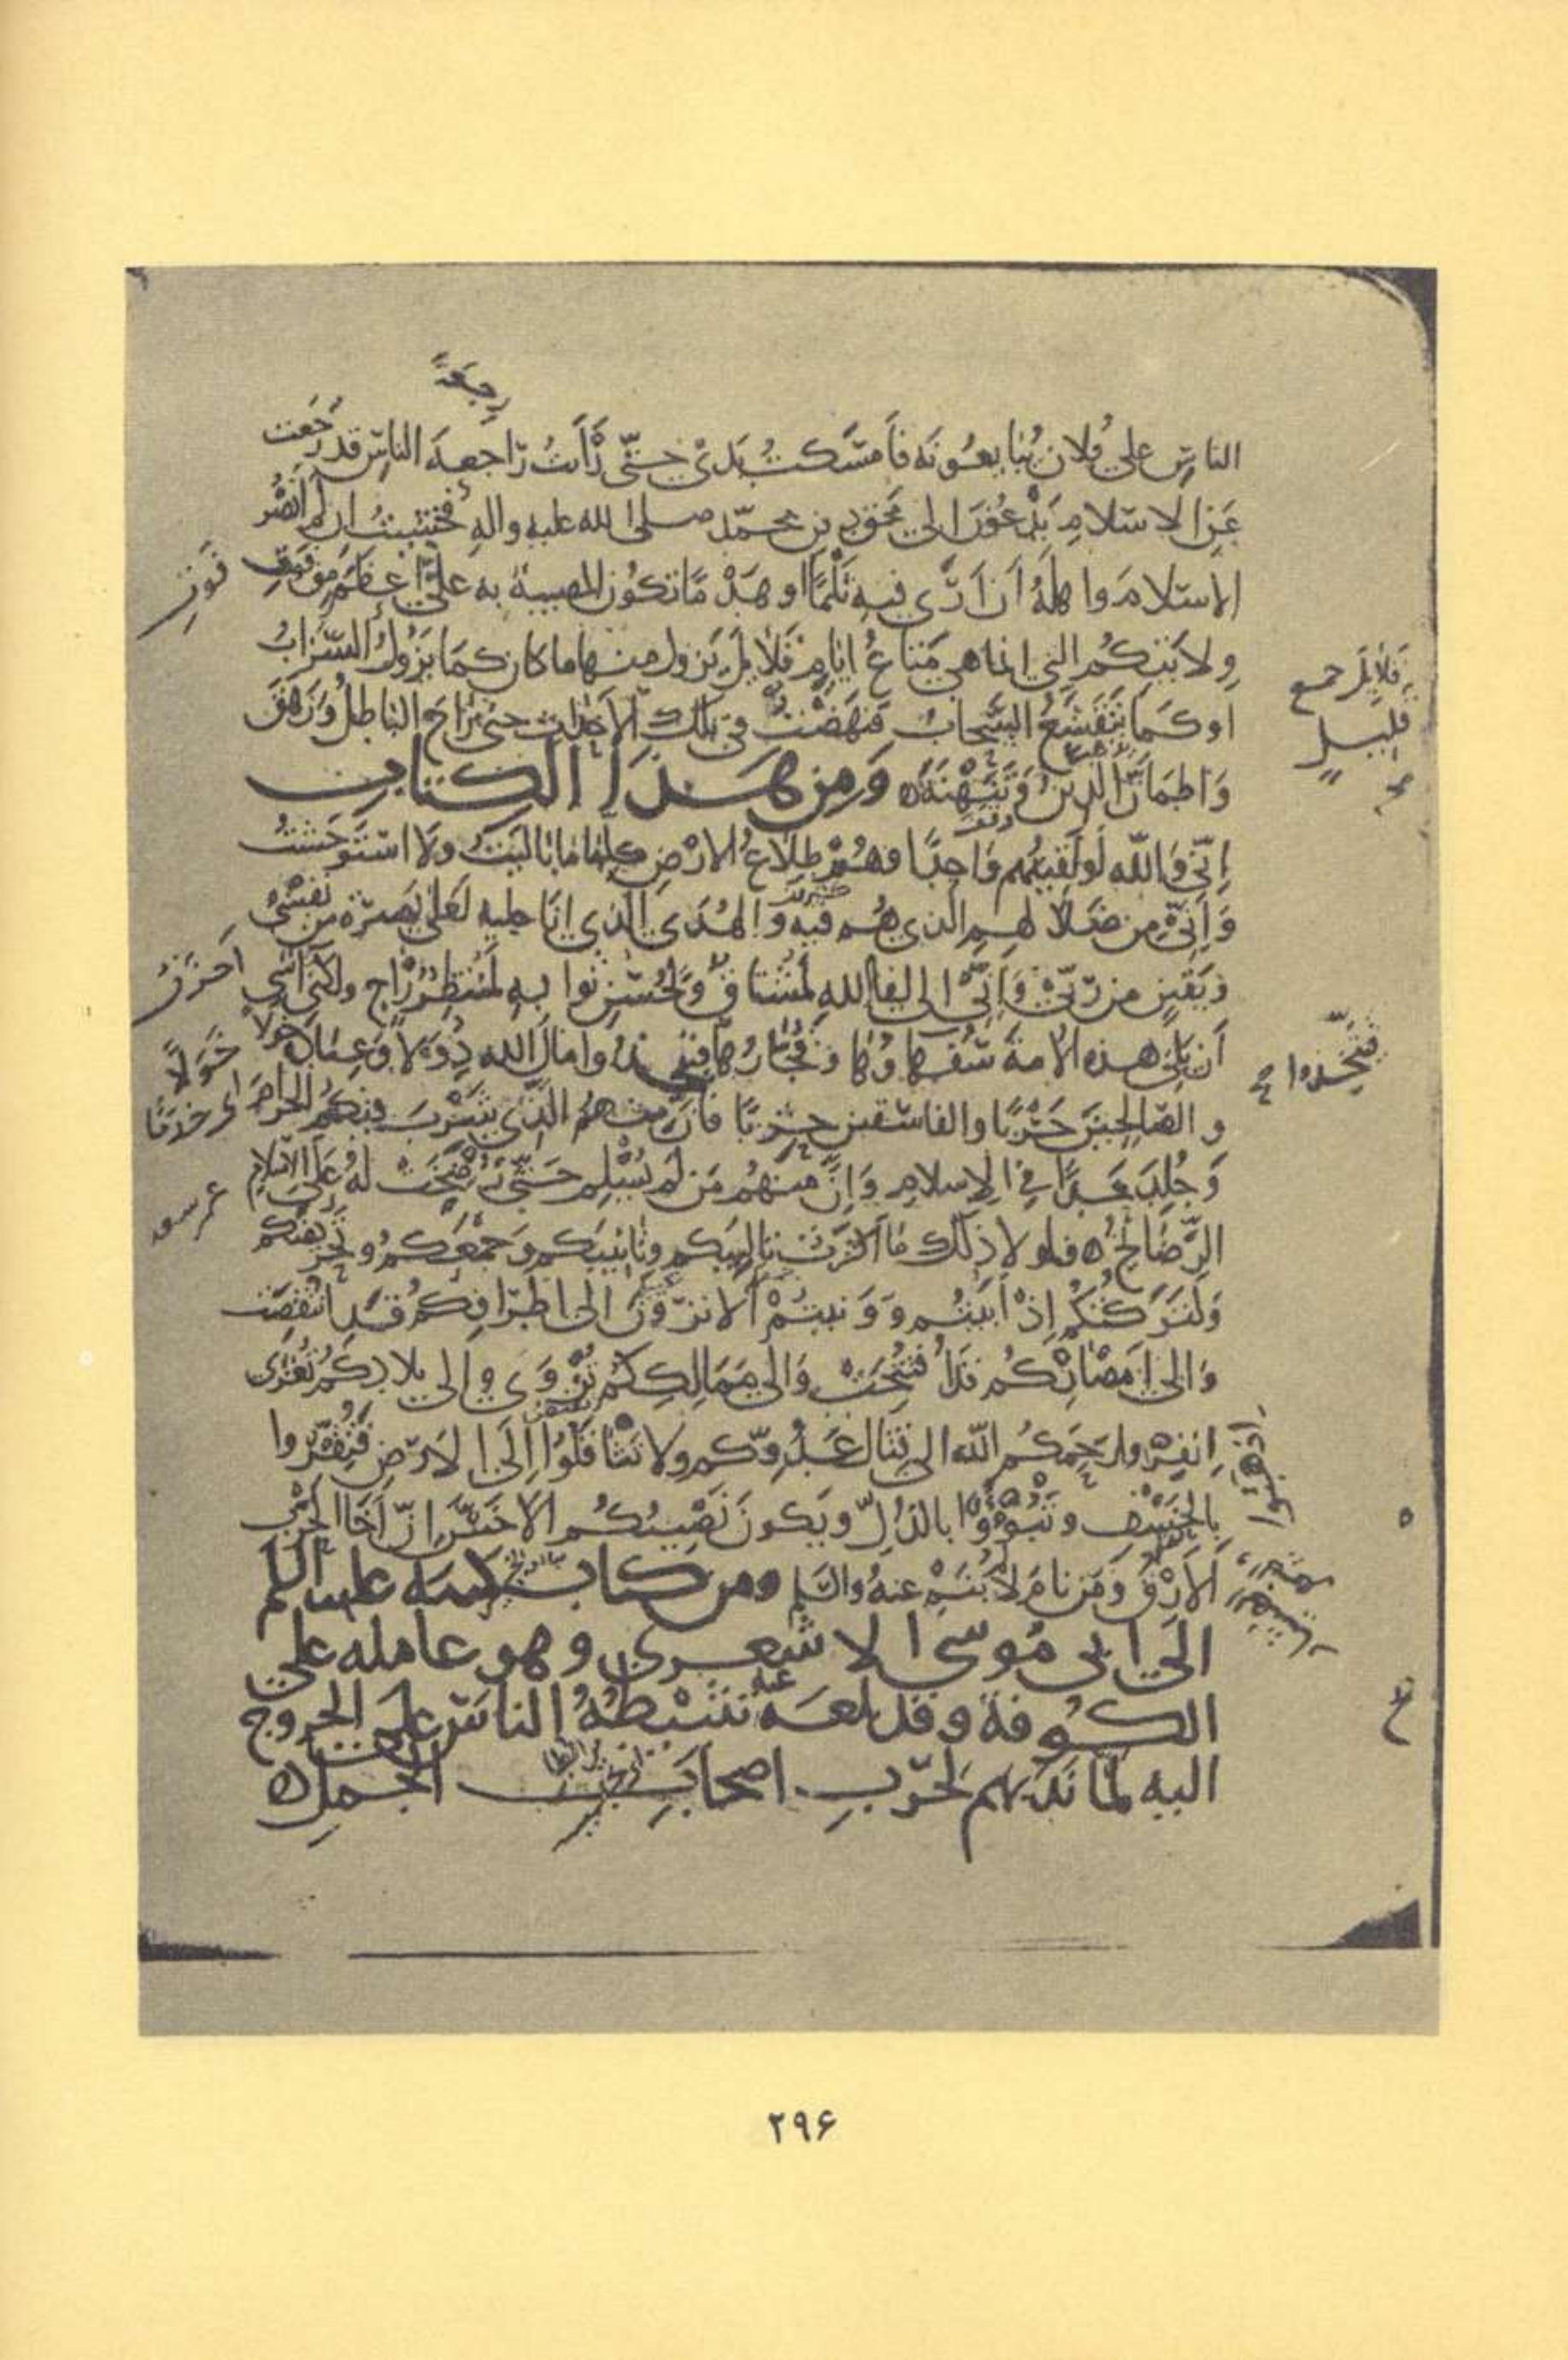 رجعةً
الناسِ على فُلانٍ يُبايعُونَه فَأمسَكتُ يَدىْ حتّى رَأَيتُ راجعةَ الناسِ قد رَجَعت
عَنِ الاسلامِ يَدْعُوْنَ الى مَحْقِ دينِ محمّد صلى الله عليه واله فَخشيتُ ان لم اَنصُرِ
الاسلامَ واهلَهُ اَن اَرَى فيه ثَلْمًا او هَدْمًا تكُونُ المصيبة به علىَّ اعظَمَ من فَوتِ
فَوتِ
ولايَتِكُم التى انما هى مَتاعُ ايّامٍ قَلائِلَ يَزول منها ما كان كَما يَزُولُ السّرَابُ
قَلائِلَ جمع
قليلٍ
او كَما يَتَقَشَّعُ السَّحابُ فنَهَضْتُ فى تلك الاحداث حتى زاحَ الباطلُ وَزَهَقَ
وَاطمَاَنَّ الدينُ وَتَنَهْنَهَ ه وَمِن هَـذَا الكتابِ
اِنّى وَالله لَو لَقِيتُهُم وَاحِدًا وهُمْ طِلاعُ الارْضِ كلِّها ما بَالَيتُ ولا استَوحَشتُ
وَاِنّى مِن ضَلالهِم الذى هُم فيه وَالهُدَى الذى انَا عليه لَعَلى بَصيرَةٍ من نَفسى
وَيَقينٍ من رَبّى وَاِنّى الى لِقاءِ الله لَمُشتاقٌ ولِحُسنِ ثَوابِهِ لَمُنتَظِرٌ رَاجٍ ولكنّى آسى
احزَنُ
اَن يَلِىَ هذه الامةَ سُفَهاؤُها وَفُجّارُها فيتّخذوا مالَ الله دُوَلاً وَعِبادَهُ خَوَلاً
خَوَلاً
فيتّخِذوا
اى خدَمًا
والصّالحِينَ حَرْبًا والفاسقين حِزبًا فَاِنَّ منهُمُ الَّذى شَرِبَ فيكُمُ الحرامَ
وَجُلِدَ حَدًّا فى الاسلامِ وَاِنَّ منهُم مَن لَم يُسْلِم حَتّى رُضِخَت لَهُ عَلَى الاسلامِ
الرَّضَائِخُ ه فلو لا ذلك ما اَكثَرْتُ تَاليبَكم وتَانيبَكم وَجَمْعَكُم وتحريضَكم
وَلَتَرَكتُكُم اِذْ اَبَيْتُم وَوَنَيتُمْ اَلا تَرَوْنَ الى اطرَافِكُم قَدِ انتُقِصَت
وَالى اَمصَارِكُم قَد فُتِحَت وَالى مَمَالِكِكُم تُزْوَى والى بلادِكُم تُغزَى
اِنفِروا رَحِمَكُم الله الى قِتالِ عَدُوِّكم ولا تَثّاقَلُوا اِلَى الاَرضِ فَتُقِرّوا
بِالخَسْفِ وتَبُوءُوا بالذُلِّ وَيَكونَ نَصيبُكُم الاَخَسَّ اِنَّ اَخَا الحَرْبِ
الاَرِقُ وَمَن نامَ لَم يُنَم عنهُ والسَّلم ومن كتاب له عليه السلم
الَى ابى مُوسى الاشعرى وهو عامله على
الكُوفة وقد بلغه عنه تثبيطُهُ الناسَ على الخروج
اليه لمّا نَدَبهم لحَرْبِ اصحابِ الجملِ ه
۲۹۶